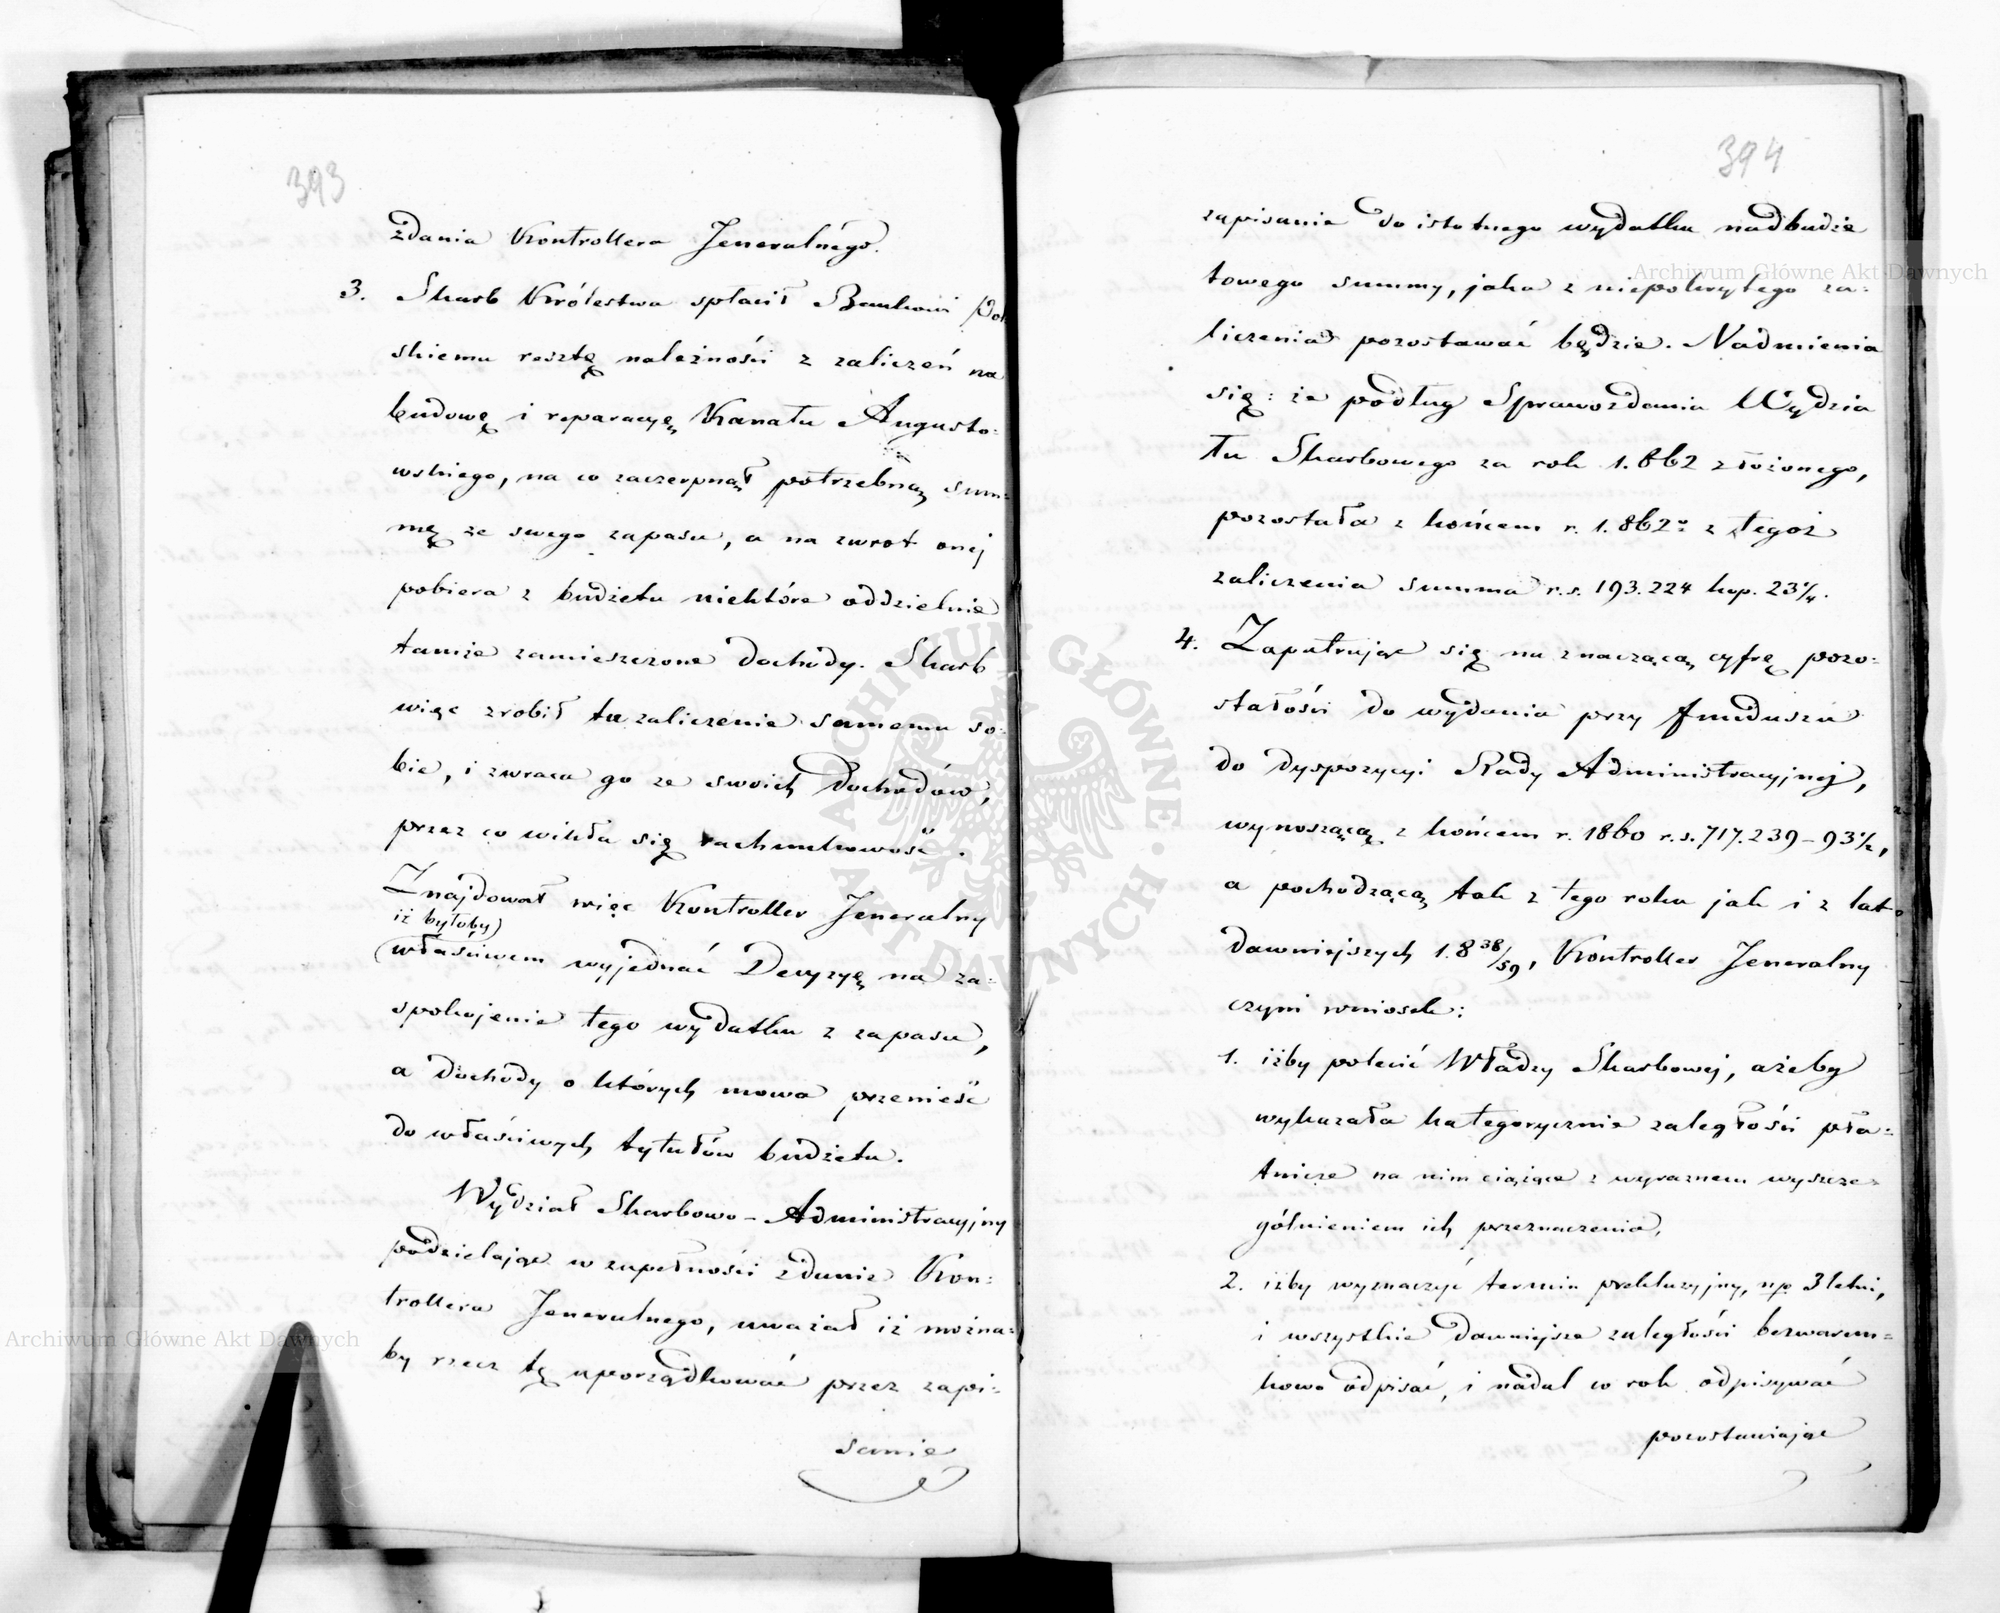 393
żdania Kontrollera Jeneralnego.
3. Skarb Królestwa spłacił Bankowi Pol
skiemu resztę należności z zaliczeń na
budowę i reparacyę Kanału Augusto-
wskiego, na co zaczerpnął potrzebną sum-
mę ze swego zapasu, a na zwrot onej
pobiera z budżetu niektóre oddzielnie
tamże zamieszczone dochody. Skarb
więc zrobił tu zaliczenie samemu so-
bie, i zwraca go ze swoich dochodów,
przez co wikła się rachunkowość.
Znajdował więc Kontroller Jeneralny
iż byłoby
właściwem wyjednać Decyzyę na za-
spokojenie tego wydatku z zapasu,
a dochody o których mowa przenieść
do właściwych tytułów budżetu.
Wydział Skarbowo-Administracyjny
podzielając w zupełności zdanie Kon-
trollera Jeneralnego, uważał iż można-
by rzecz tę uporządkować przez zapi-
sanie
394
zapisanie do istotnego wydatku nadbudże
towego summy, jaka z niepokrytego za-
liczenia pozostawać będzie. Nadmienia
się: że podług Sprawozdania Wydzia
łu Skarbowego za rok 1.862 złożonego,
pozostała z końcem r. 1.862o z tegoż
zaliczenia summa r.s. 193.224 kop. 23 1/4.
4. Zapatrując się na znaczącą cyfrę pozo-
stałości do wydania przy funduszu
do dyspozycyi Rady Administracyjnej,
wynoszącą z końcem r. 1860 r.s. 717.239-93 1/2,
a pochodzącą tak z tego roku jak i z lat
dawniejszych 1.8 38/59, Kontroller Jeneralny
czyni wniosek:
1. iżby polecić Władzy Skarbowej, ażeby
wykazała kategorycznie zaległości pła-
tnicze na nim ciążące z wyraznem wyszcze-
gólnieniem ich przeznaczenia,
2. iżby wyznaczyć termin prekluzyjny, np. 3 letni,
i wszystkie dawniejsze zaległości bezwarun-
kowo odpisać, i nadal co rok odpisywać
pozostawiając
Archiwum Główne Akt Dawnych
Archiwum Główne Akt Dawnych
ARCHIWUM GŁÓWNE AKT DAWNYCH